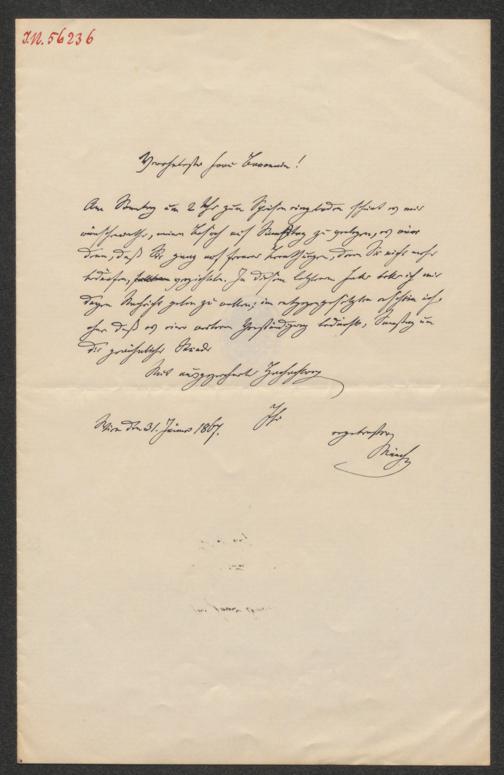 I.N. 56236
Verehrteste Frau Baronin!
Am Sonntag um 2 Uhr zum Speisen eingeladen scheint es mir
wünschenswerth, meinen Besuch auf Samstag zu verlegen, es wäre
denn, daß Sie ganz auf fernere Berathungen, deren Sie nicht mehr
bedürfen, verzichten. In diesem letzteren Falle bitte ich mir
davon Nachricht geben zu wollen; im entgegengesetzten erscheine ich,
ohne daß es einer weiteren Verständigung bedürfte, Samstag um
die gewöhnliche Stunde
Mit ausgezeichneter Hochachtung
Ihr
Wien den 31. Jänner 1867.
ergebenster
Münch